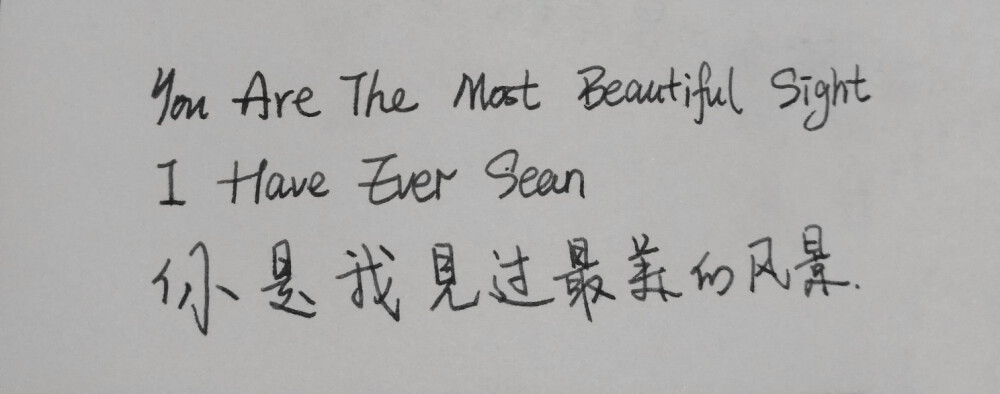 You Are The Most Beautiful Sight
I Have Ever Sean
你是我見过最美的风景.